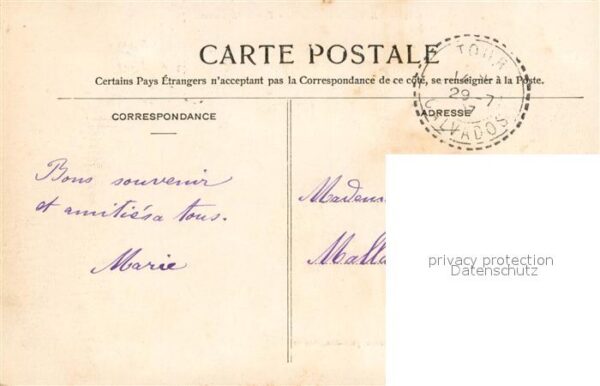 CARTE POSTALE
Certains Pays Étrangers n'acceptant pas la Correspondance de ce côté, se renseigner à la Poste.
TOUR
29 7
CALVADOS
CORRESPONDANCE
ADRESSE
Bons souvenir
et amitiés a tous.
Marie
Madem
Malla
privacy protection
Datenschutz